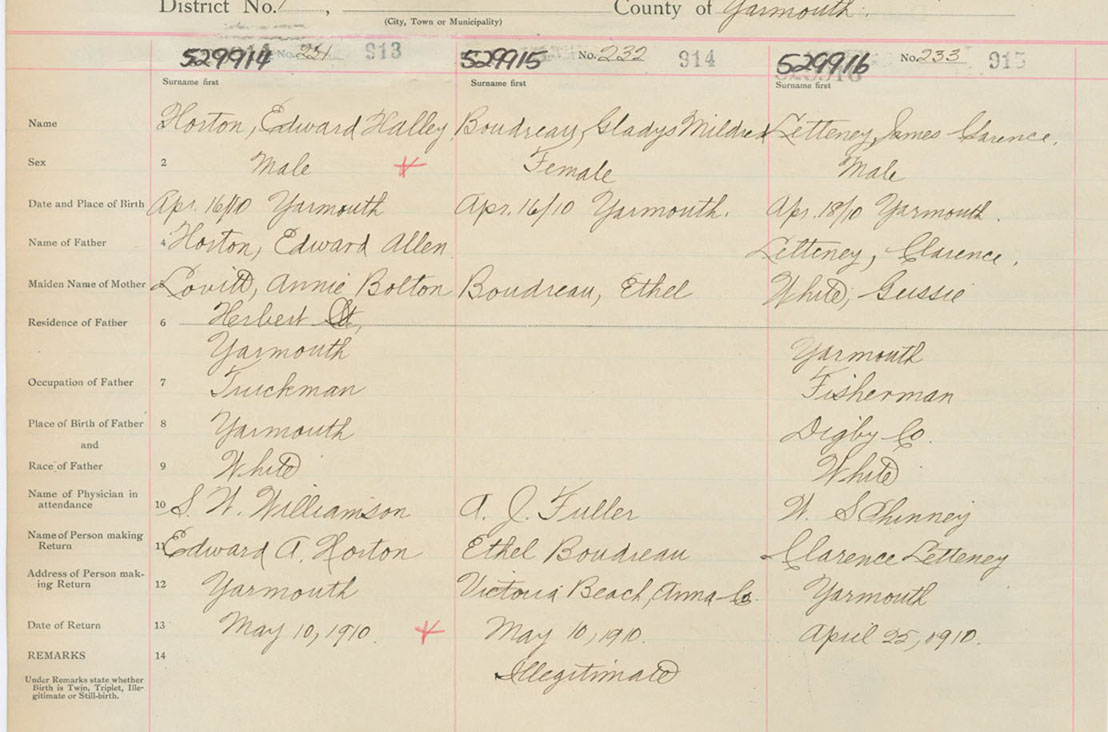 District No. 1, County of Yarmouth.
(City, Town or Municipality)
529914 No. 231 913 529915 No. 232 914 529916 No. 233 915
Surname first Surname first Surname first
Name Horton, Edward Halley Boudreau, Gladys Mildred Letteney, James Clarence.
Sex 2 Male Female Male
Date and Place of Birth Apr. 16/10 Yarmouth Apr. 16/10 Yarmouth. Apr. 18/10 Yarmouth.
Name of Father 4 Horton, Edward Allen Letteney, Clarence.
Maiden Name of Mother Lovitt, Annie Bolton Boudreau, Ethel White, Gussie
Residence of Father 6 Herbert St,
Yarmouth Yarmouth
Occupation of Father 7 Truckman Fisherman
Place of Birth of Father 8 Yarmouth Digby Co.
and
Race of Father 9 White White
Name of Physician in
attendance 10 S. W. Williamson A. J. Fuller W. S Phinney
Name of Person making
Return 11 Edward A. Horton Ethel Boudreau Clarence Letteney
Address of Person mak-
ing Return 12 Yarmouth Victoria Beach, Anna Co. Yarmouth
Date of Return 13 May 10, 1910. May 10, 1910. April 25, 1910.
REMARKS 14 Illegitimate
Under Remarks state whether
Birth is Twin, Triplet, Ille-
gitimate or Still-birth.